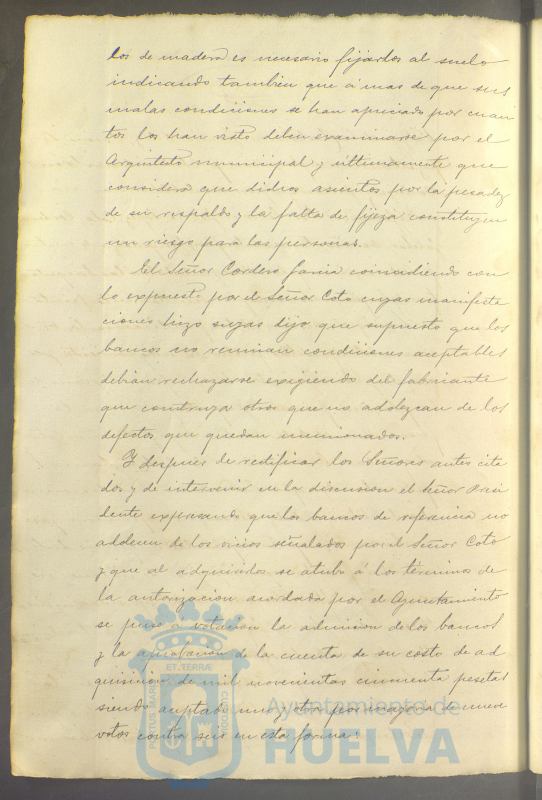 los de madera es necesario fijarlos al suelo
indicando tambien que á mas de que sus
malas condiciones se han apreciado por cuan
tos los han visto deben examinarse por el
Arquitecto municipal y ultimamente que
considera que dichos asientos por la pesadez
de su respaldo y la falta de fijeza constituyen
un riesgo para las personas.
El Señor Cordero Garcia coincidiendo con
lo expuesto por el Señor Coto cuyas manifesta
ciones hizo suyas dijo que supuesto que los
bancos no reunian condiciones aceptables
debian rechazarse exigiendo del fabricante
que construya otros que no adolezcan de los
defectos que quedan mencionados.
Y despues de rectificar los Señores antes cita
dos y de intervenir en la discusion el Señor Presi
dente expresando que los bancos de referencia no
adolecen de los vicios señalados por el Señor Coto
y que al adquirirlos se atubo á los términos de
la autorizacion acordada por el Ayuntamiento
se puso a votacion la admision de los bancos
y la aprobacion de la cuenta de su costo de ad
quisicion de mil novecientas cincuenta pesetas
siendo aceptado uno y otro por mayoria de nueve
votos contra seis en esta forma:
PORTUS MARIS ET TERRÆ CUSTODIA
Ayuntamiento de
HUELVA